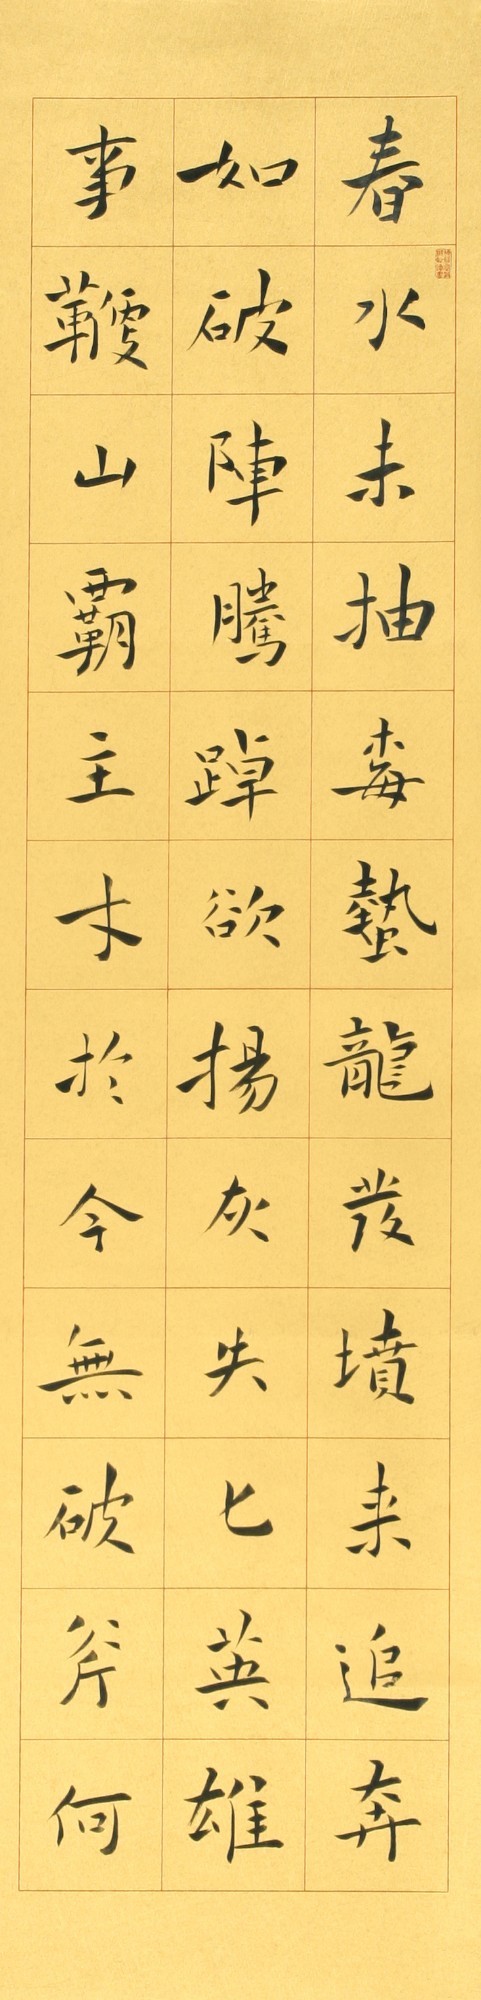 春水未抽梅蟄龍發墳来追奔
如破陣騰踔欲揚灰失匕英雄
事山霸主木於今無破斧何